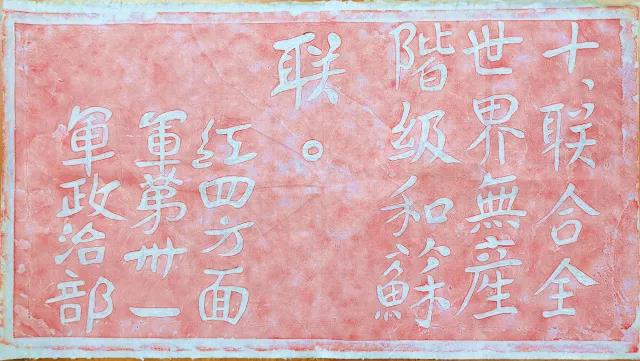 十、联合全
世界無産
階級和蘇
联。
紅四方面
軍第卅一
軍政治部